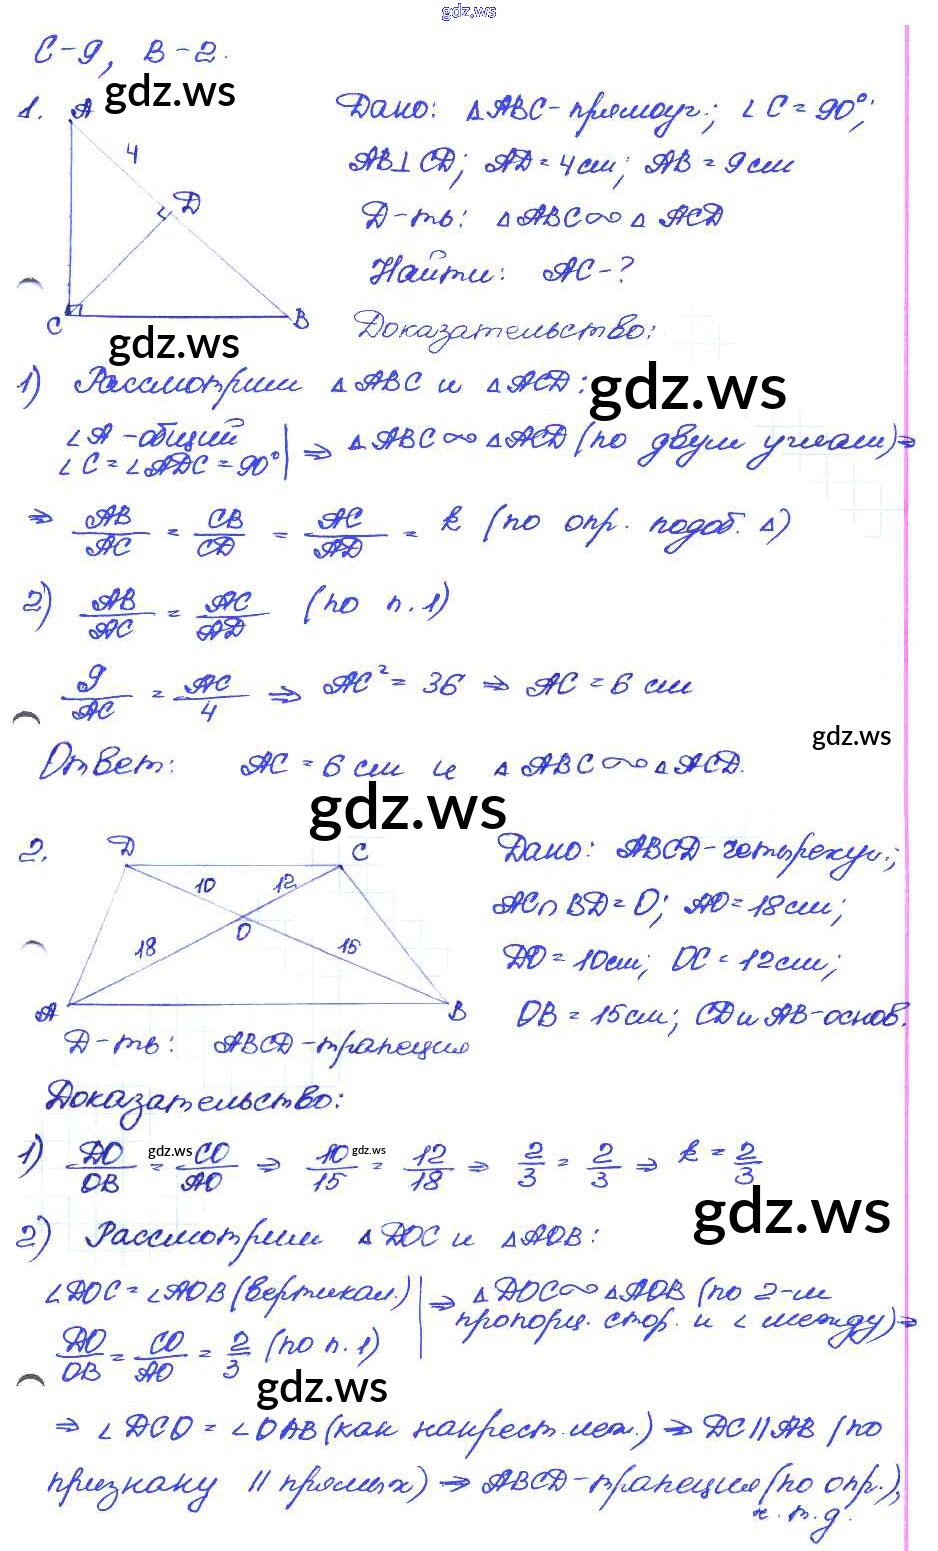 gdz.ws
С-9, В-2.
gdz.ws
1. A
4
D
C
B
Дано: △ABC-прямоуг.; ∠C=90°;
AB⊥CD; AD=4см; AB=9см
Д-ть: △ABC∞△ACD
Найти: AC-?
Доказательство:
gdz.ws
1) Рассмотрим △ABC и △ACD:
gdz.ws
∠A-общий
∠C=∠ADC=90° | ⇒ △ABC∞△ACD (по двум углам)⇒
⇒ AB/AC = CB/CD = AC/AD = k (по опр. подоб. △)
2) AB/AC = AC/AD (по п.1)
9/AC = AC/4 ⇒ AC²=36 ⇒ AC=6 см
gdz.ws
Ответ: AC=6 см и △ABC∞△ACD.
gdz.ws
2. D
C
10
12
O
18
15
A
B
Дано: ABCD-четырехуг.;
AC∩BD=O; AO=18см;
DO=10см; OC=12см;
OB=15см; CD и AB-основ.
Д-ть: ABCD-трапеция
Доказательство:
1) DO/OB = CO/AO ⇒ 10/15 = 12/18 ⇒ 2/3 = 2/3 ⇒ k=2/3
gdz.ws
gdz.ws
gdz.ws
2) Рассмотрим △DOC и △AOB:
∠DOC=∠AOB (вертикал.) | ⇒ △DOC∞△AOB (по 2-м
DO/OB = CO/AO = 2/3 (по п.1) | пропорц. стор. и ∠ между)⇒
gdz.ws
⇒ ∠DCO=∠OAB (как накрест. леж.) ⇒ DC||AB (по
признаку || прямых) ⇒ ABCD-трапеция (по опр.),
ч.т.д.